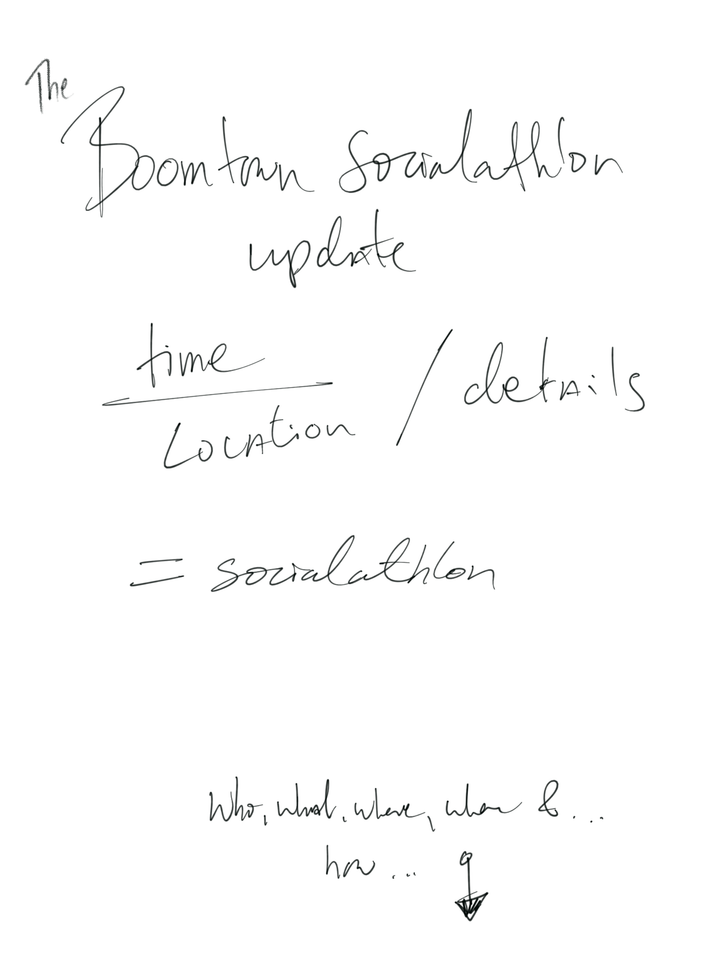 The
Boomtown Socialathlon
update
time
Location / details
= socialathlon
Who, what, where, when & ...
how ...